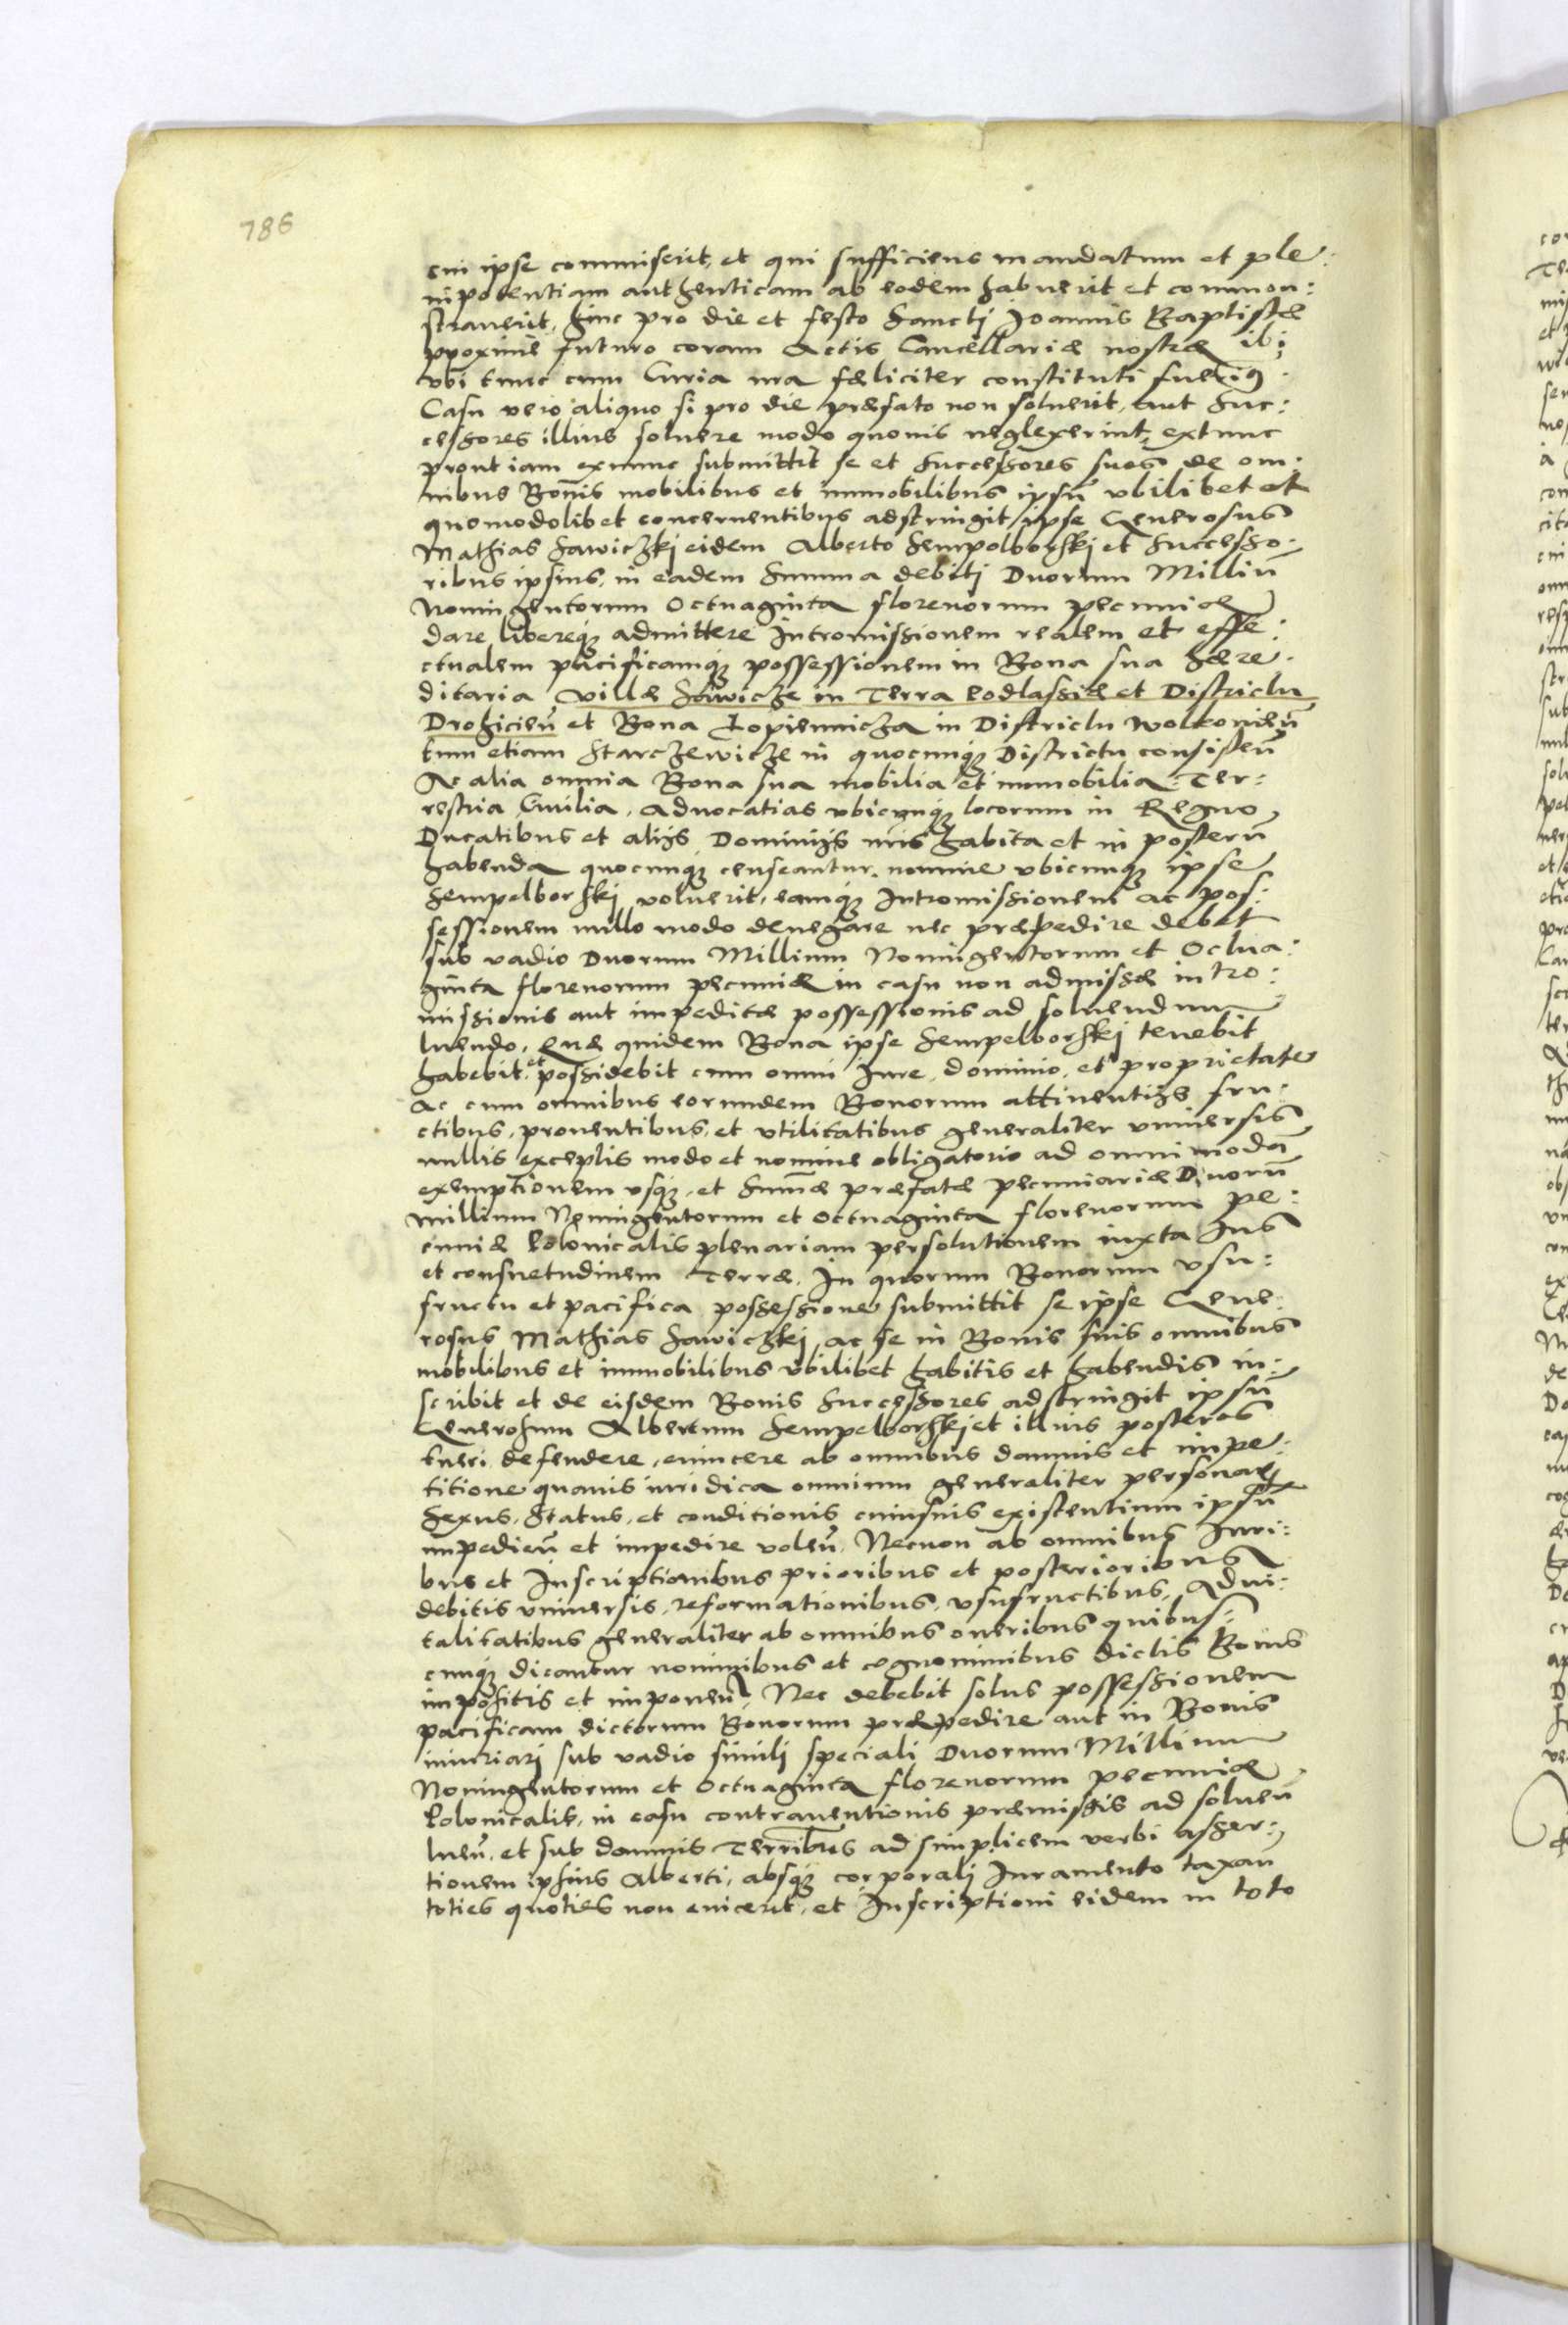 786
cui ipse commiserit, et qui sufficiens mandatum et ple:
nipotentiam authenticam ab eodem habuerit et common:
straverit, hinc pro die et festo Sanctj Joannis Baptistæ
proxime futuro coram Actis Cancellariæ nostræ ibi
vbi tunc cum Curia nra fæliciter constituti fuerimus
Casu vero aliquo si pro die præfato non soluerit, aut Suc:
cessores illius soluere modo quouis neglexerint, extunc
prout iam exnunc submittit se et Successores suos de om:
nibus Bonis mobilibus et immobilibus ipsū vbilibet et
quomodolibet concernentibus adstringit ipse Generosus
Mathias Sawiczkj eidem Alberto Sempolborskj et Successo:
ribus ipsius, in eadem Summa debitj Duorum Milliū
Nonningentorum Octuaginta florenorum pecuniæ
dare libereqꝫ admittere Intromissionem realem et effe:
ctualem pacificamqꝫ possessionem in Bona sua hære:
ditaria villæ Sawicze in Terra Podlassiæ et Districtu
Drohicieñ et Bona Łopiennicza in Districtu Wolkowieñ
tum etiam Starczewicze in quocunqꝫ Districtu consisteñ
Ac alia omnia Bona sua mobilia et immobilia Ter:
restria Ciuilia, Aduocatias vbicunqꝫ locorum in Regno
Ducatibus et alijs Dominijs nris habita et in posterū
habenda quocunqꝫ censeantur nomine vbicunqꝫ ipse
Sempelborskj voluerit, eamqꝫ Intromissionem ac pos:
sessionem nullo modo denegare nec præpedire debet
sub vadio Duorum Millium Noningentorum et Octua:
ginta florenorum pecuniæ in casu non admissæ intro:
missionis aut impeditæ possessionis ad soluendum
luendo. Quæ quidem Bona ipse Sempelborskj tenebit
habebit, et possidebit cum omni Iure, dominio, et proprietate
Ac cum omnibus eorundem Bonorum attinentijs fru:
ctibus, prouentibus, et vtilitatibus generaliter vniuersis
nullis exceptis modo et nomine obligatorio ad omnimodā
exemptionem vsqꝫ, et Summæ præfatæ pecuniariæ Duorū
Millium Noningentorum et Octuaginta florenorum pe:
cuniæ Polonicalis plenariam persolutionem iuxta Ius
et consuetudinem Terræ. In quorum Bonorum vsu:
fructu et pacifica possessione submittit se ipse Gene:
rosus Mathias Sawiczkj, ac se in Bonis suis omnibus
mobilibus et immobilibus vbilibet habitis et habendis in:
scribit et de eisdem Bonis Successores adstringit ipsū
Generosum Albertum Sempelborskj et illius posteros
tueri, defendere, euincere ab omnibus damnis et impe:
titione quauis iuridica omnium generaliter personarū
Sexus, Status, et conditionis cuiusuis existentium ipsū
impedieñ et impedire voleñ. Necnon ab omnibus Iuri:
bus et Inscriptionibus prioribus et posterioribus
debitis vniuersis, reformationibus, vsufructibus, Adui:
talitatibus generaliter ab omnibus oneribus quibus:
cunqꝫ dicantur nominibus et cognominibus dictis Bonis
impositis et imponeñ. Nec debebit solus possessionem
pacificam dictorum Bonorum præpedire aut in Bonis
iniuriarj sub vadio similj specialj Duorum Millium
Noningentorum et Octuaginta florenorum pecuniæ
Polonicalis, in casu contrauentionis præmissis ad solueñ
lueñ, et sub damnis Terribus ad simplicem verbi asser:
tionem ipsius Alberti, absqꝫ corporalj Iuramento taxan
toties quoties non euicerit, et Inscriptioni eidem in toto